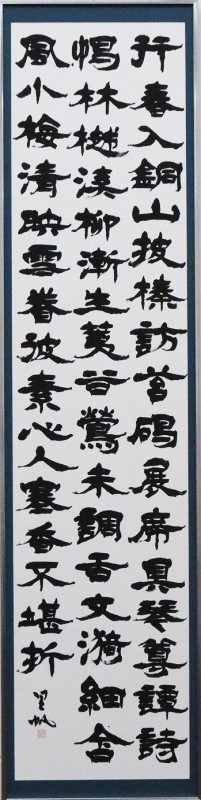 行春入銅山披榛訪苔碣展席具琴尊譚詩
愒林樾溪柳漸生荑谷鶯未調舌文漪細含
風小梅清映雪眷彼素心人寒香不堪折